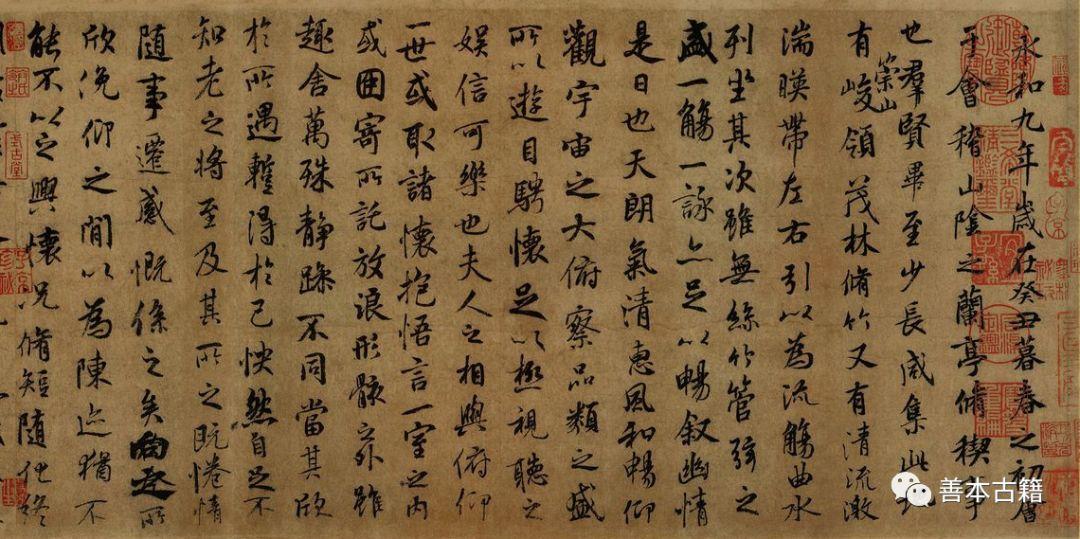 永和九年歲在癸丑暮春之初會
于會稽山陰之蘭亭脩稧事
也羣賢畢至少長咸集此地
有崇山峻領茂林脩竹又有清流激
湍暎帶左右引以為流觴曲水
列坐其次雖無絲竹管弦之
盛一觴一詠亦足以暢叙幽情
是日也天朗氣清惠風和暢仰
觀宇宙之大俯察品類之盛
所以遊目騁懷足以極視聽之
娛信可樂也夫人之相與俯仰
一世或取諸懷抱悟言一室之內
或因寄所託放浪形骸之外雖
趣舍萬殊靜躁不同當其欣
於所遇暫得於己怏然自足不
知老之將至及其所之既惓情
隨事遷感慨係之矣向之所
欣俛仰之閒以為陳迹猶不
能不以之興懷況脩短隨化終
善本古籍